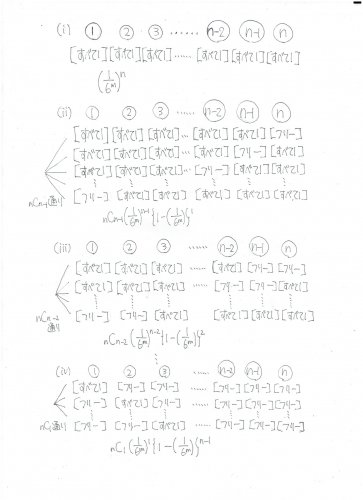 (i) ① ② ③ …… n-2 n-1 n
[すべて1][すべて1][すべて1]……[すべて1][すべて1][すべて1]
(1/6^m)^n
(ii) ① ② ③ …… n-2 n-1 n
[すべて1][すべて1][すべて1]…[すべて1][すべて1][フリー]
[すべて1][すべて1][すべて1]…[すべて1][フリー][すべて1]
[すべて1][すべて1][すべて1]…[フリー][すべて1][すべて1]
⋮ ⋮ ⋮ ⋮ ⋮ ⋮
nCn-1通り [フリー][すべて1][すべて1]…[すべて1][すべて1][すべて1]
nCn-1(1/6^m)^n-1{1-(1/6^m)}^1
(iii) ① ② ③ …… n-2 n-1 n
[すべて1][すべて1][すべて1]……[すべて1][フリー][フリー]
[すべて1][すべて1][すべて1]……[フリー][フリー][すべて1]
⋮ ⋮ ⋮ ⋮ ⋮ ⋮
nCn-2通り [フリー][フリー][すべて1] [すべて1][すべて1][すべて1]
nCn-2(1/6^m)^n-2{1-(1/6^m)}^2
⋮
(iv) ① ② ③ …… n-2 n-1 n
[すべて1][フリー][フリー]……[フリー][フリー][フリー]
[フリー][すべて1][フリー]……[フリー][フリー][フリー]
⋮ ⋮ ⋮ ⋮ ⋮ ⋮
nC1通り [フリー][フリー][フリー]……[フリー][フリー][すべて1]
nC1(1/6^m)^1{1-(1/6^m)}^n-1